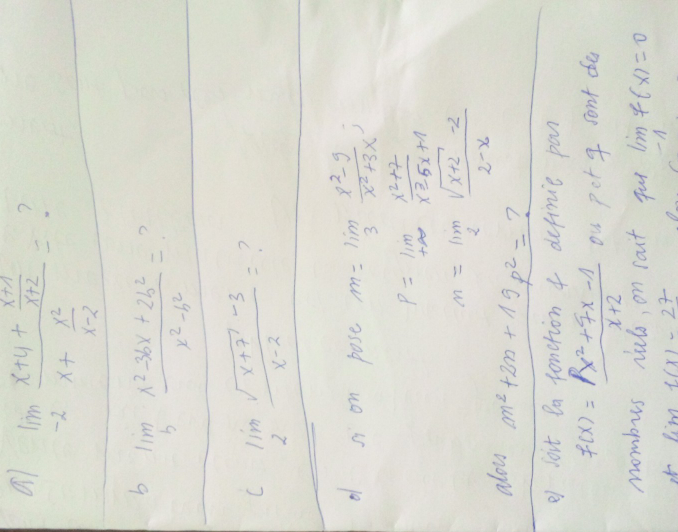 a) lim -2 (x+4 + (x+1)/(x+2)) / (x + x²/(x-2)) = ?
b lim b (x²-3bx+2b²)/(x²-b²) = ?
c lim 2 (√(x+7) -3)/(x-2) = ?
d) si on pose m = lim 3 (x²-9)/(x²+3x) ;
p = lim +∞ (x²+7)/(x²-5x+1)
n = lim 2 (√(x+2) -2)/(2-x)
alors m²+2n+19p² = ?
e) soit la fonction f definie par
f(x) = (Px²+qx-1)/(x+2) ou p et q sont des
nombres réels, on sait que lim -1 f(x) = 0
et lim f(x) = 27